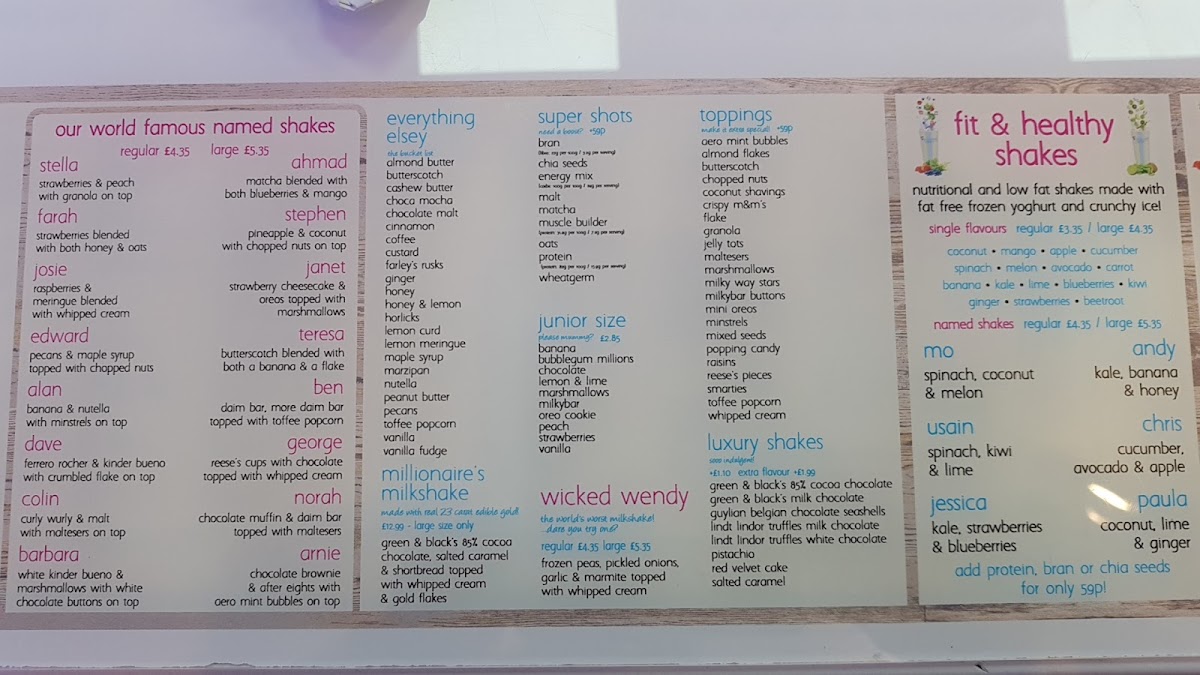 our world famous named shakes
regular £4.35 large £5.35
stella
strawberries & peach
with granola on top
farah
strawberries blended
with both honey & oats
josie
raspberries &
meringue blended
with whipped cream
edward
pecans & maple syrup
topped with chopped nuts
alan
banana & nutella
with minstrels on top
dave
ferrero rocher & kinder bueno
with crumbled flake on top
colin
curly wurly & malt
with maltesers on top
barbara
white kinder bueno &
marshmallows with white
chocolate buttons on top
ahmad
matcha blended with
both blueberries & mango
stephen
pineapple & coconut
with chopped nuts on top
janet
strawberry cheesecake &
oreos topped with
marshmallows
teresa
butterscotch blended with
both a banana & a flake
ben
daim bar, more daim bar
topped with toffee popcorn
george
reese's cups with chocolate
topped with whipped cream
norah
chocolate muffin & daim bar
topped with maltesers
arnie
chocolate brownie
& after eights with
aero mint bubbles on top
everything
elsey
the bucket list
almond butter
butterscotch
cashew butter
choca mocha
chocolate malt
cinnamon
coffee
custard
farley's rusks
ginger
honey
honey & lemon
horlicks
lemon curd
lemon meringue
maple syrup
marzipan
nutella
peanut butter
pecans
toffee popcorn
vanilla
vanilla fudge
millionaire's
milkshake
made with real 23 carat edible gold!
£12.99 - large size only
green & black's 85% cocoa
chocolate, salted caramel
& shortbread topped
with whipped cream
& gold flakes
super shots
need a boost? +59p
bran
chia seeds
energy mix
malt
matcha
muscle builder
oats
protein
wheatgerm
junior size
please mummy? £2.85
banana
bubblegum millions
chocolate
lemon & lime
marshmallows
milkybar
oreo cookie
peach
strawberries
vanilla
wicked wendy
the world's worst milkshake!
...dare you try one?
regular £4.35 large £5.35
frozen peas, pickled onions,
garlic & marmite topped
with whipped cream
toppings
make it extra special! +59p
aero mint bubbles
almond flakes
butterscotch
chopped nuts
coconut shavings
crispy m&m's
flake
granola
jelly tots
maltesers
marshmallows
milky way stars
milkybar buttons
mini oreos
minstrels
mixed seeds
popping candy
raisins
reese's pieces
smarties
toffee popcorn
whipped cream
luxury shakes
sooo indulgent!
+£1.10 extra flavour +£1.99
green & black's 85% cocoa chocolate
green & black's milk chocolate
guylian belgian chocolate seashells
lindt lindor truffles milk chocolate
lindt lindor truffles white chocolate
pistachio
red velvet cake
salted caramel
fit & healthy
shakes
nutritional and low fat shakes made with
fat free frozen yoghurt and crunchy ice!
single flavours regular £3.35 / large £4.35
coconut • mango • apple • cucumber
spinach • melon • avocado • carrot
banana • kale • lime • blueberries • kiwi
ginger • strawberries • beetroot
named shakes regular £4.35 / large £5.35
mo
spinach, coconut
& melon
andy
kale, banana
& honey
usain
spinach, kiwi
& lime
chris
cucumber,
avocado & apple
jessica
kale, strawberries
& blueberries
paula
coconut, lime
& ginger
add protein, bran or chia seeds
for only 59p!